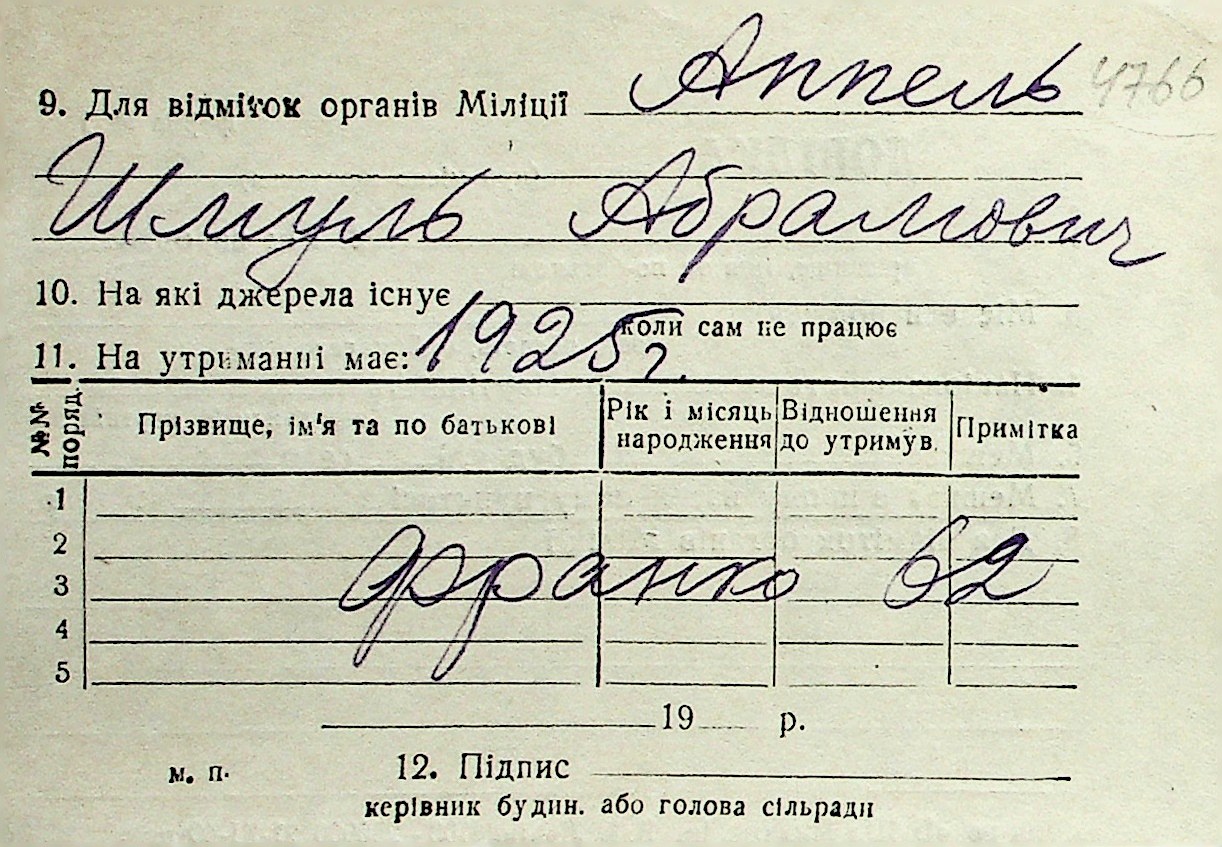 9. Для відміток органів Міліції Аппель 4766
Шмуль Абрамович
10. На які джерела існує
коли сам не працює
11. На утриманні має: 1925 г.
№№ поряд. Прізвище, ім'я та по батькові Рік і місяць народження Відношення до утримув. Примітка
1
2
Франко 62
3
4
5
19 р.
м. п. 12. Підпис
керівник будин. або голова сільради